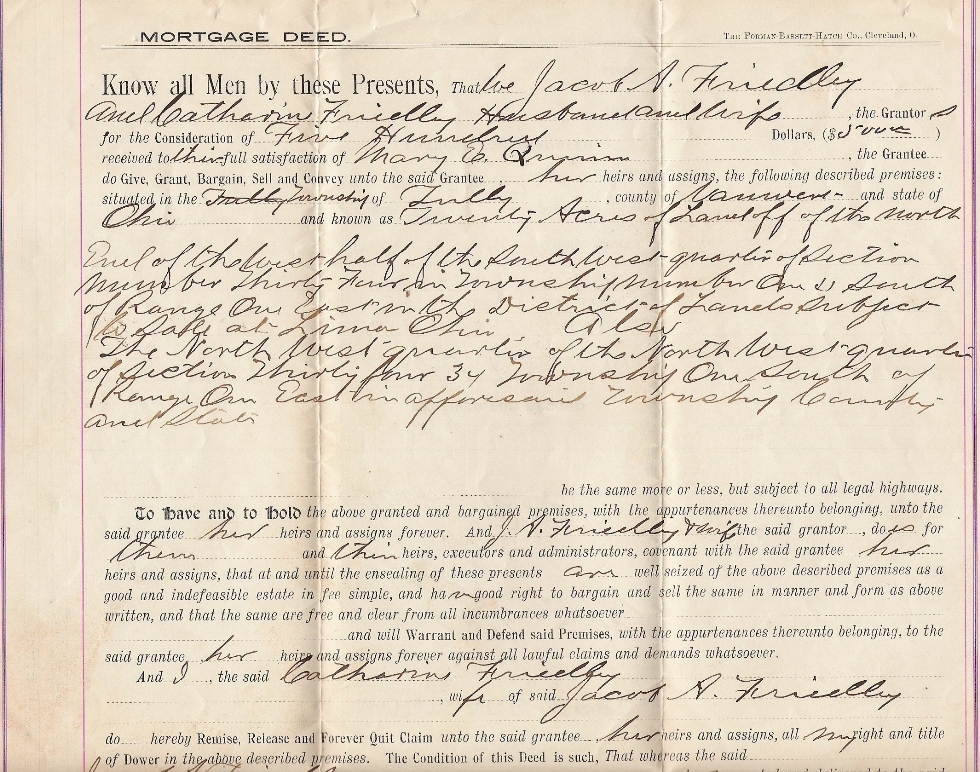 MORTGAGE DEED. The Forman-Bassett-Hatch Co., Cleveland, O.
Know all Men by these Presents, That We Jacob A. Friedley
and Catharine Friedley Husband and Wife , the Grantor s
for the Consideration of Five Hundred Dollars, ($500 )
received to their full satisfaction of Mary E. , the Grantee
do Give, Grant, Bargain, Sell and Convey unto the said Grantee , her heirs and assigns, the following described premises:
situated in the Township of Tully , county of Vanwert and state of
Ohio and known as Twenty Acres of Land off of the north
End of the west half of the South West quarter of Section
Number Thirty Four in Township number One 1 South
of Range One East in the District of Lands Subject
to Sale at Lima Ohio Also
The North West quarter of the North West quarter
of Section Thirty four 34 Township One South of
Range One East in afforesaid Township County
and State
be the same more or less, but subject to all legal highways.
To Have and to Hold the above granted and bargained premises, with the appurtenances thereunto belonging, unto the
said grantee her heirs and assigns forever. And J. A. Friedley & wife the said grantor , does for
them and their heirs, executors and administrators, covenant with the said grantee her
heirs and assigns, that at and until the ensealing of these presents are well seized of the above described premises as a
good and indefeasible estate in fee simple, and ha good right to bargain and sell the same in manner and form as above
written, and that the same are free and clear from all incumbrances whatsoever
and will Warrant and Defend said Premises, with the appurtenances thereunto belonging, to the
said grantee her heirs and assigns forever against all lawful claims and demands whatsoever.
And I , the said Catharine Friedley
, wife of said Jacob A. Friedley
do hereby Remise, Release and Forever Quit Claim unto the said grantee her heirs and assigns, all my right and title
of Dower in the above described premises. The Condition of this Deed is such, That whereas the said